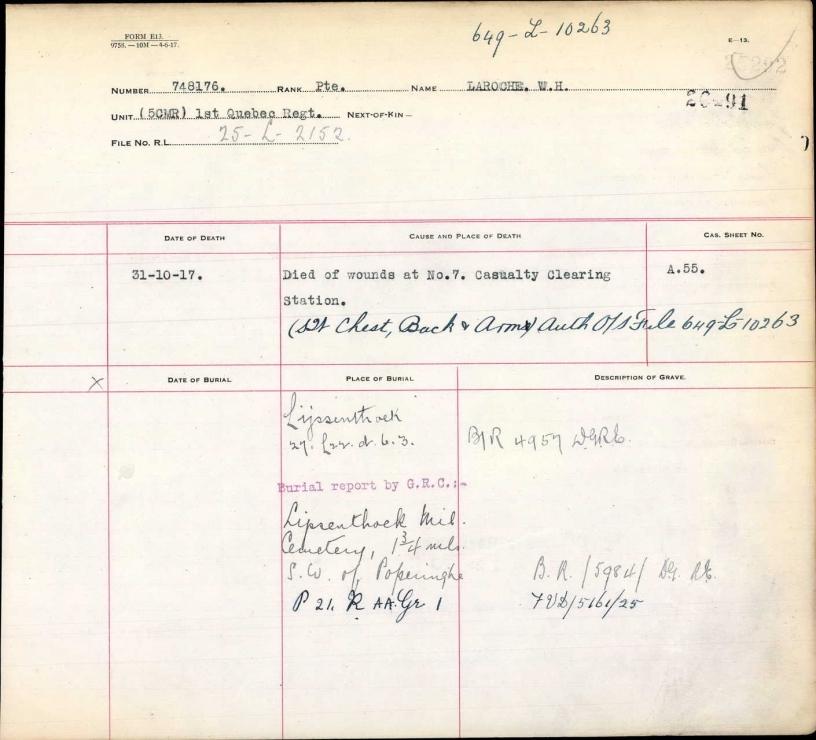 FORM E13.
9758. — 10M — 4-6-17.
649-L-10263
E—13.
26-91
NUMBER 748176. RANK Pte. NAME LAROCHE. W.H.
UNIT (5CMR) 1st Quebec Regt. NEXT-OF-KIN —
FILE No. R.L. 25-L-2152.
DATE OF DEATH CAUSE AND PLACE OF DEATH CAS. SHEET No.
31-10-17. Died of wounds at No.7. Casualty Clearing A.55.
Station.
Chest, Back & Arms) Auth O/S File 649-L-10263
X DATE OF BURIAL PLACE OF BURIAL DESCRIPTION OF GRAVE.
Lijssenthoek
27. L22. d. 6. 3. B/R 4957 D.G.R.E.
Burial report by G.R.C.:-
Lijssenthoek Mil.
Cemetery, 1¾ mls.
S.W. of, Poperinghe B.R. /5984/ D.G. R.E.
P 21. R AA. Gr 1 /5161/25